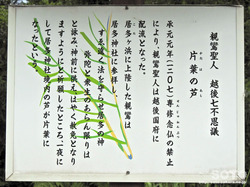 親鸞聖人 越後七不思議
片葉の芦
承元元年(一二〇七)専修念仏の禁止
により、親鸞聖人は越後国府に
配流となった。
居多ヶ浜に上陸した親鸞は
居多神社に参拝し、
すゑ遠く法を守らせ居多の神
弥陀と衆生のあらん限りは
と詠み、神前に供え、はやく赦免となり
ますようにと祈願したところ、一夜に
して居多神社境内の芦が片葉に
なったという。